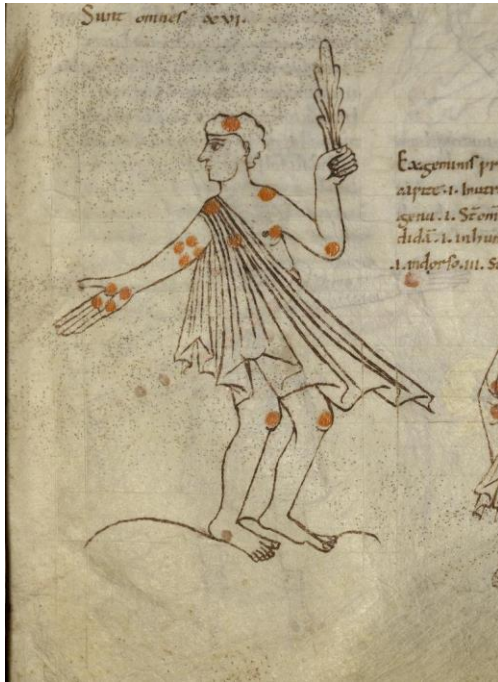 Sunt omnes xvi.
Ex geminis pr
capite .i. Inutri
genu .i. St̄ om
didā .i. inhun
.i. indorso .iii. S